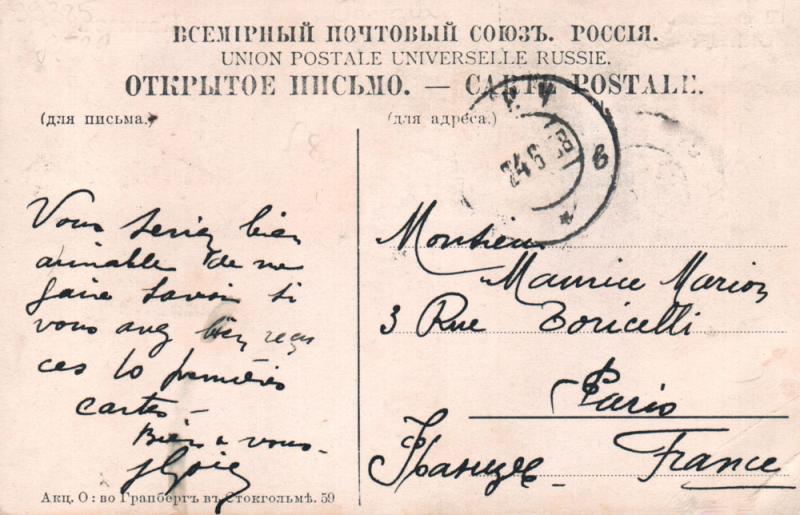 ВСЕМІРНЫЙ ПОЧТОВЫЙ СОЮЗЪ. РОССІЯ.
UNION POSTALE UNIVERSELLE RUSSIE.
ОТКРЫТОЕ ПИСЬМО. — CARTE POSTALE.
(для письма.)
(для адреса.)
24 6
6
Vous seriez bien
aimable de me
faire savoir si
vous avez bien reçu
ces 10 premières
cartes –
Bien à vous –
Monsieur
Maurice Marion
3 Rue Toricelli
Paris
Франция France
Акц. О: во Гранбергъ въ Стокгольмѣ. 59